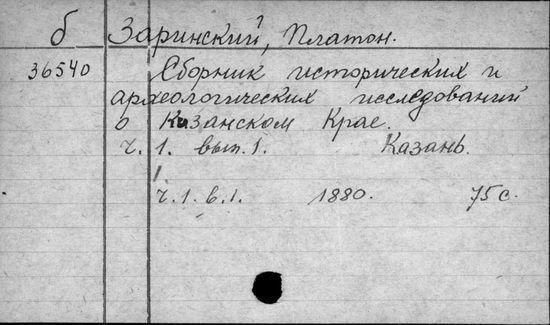 б Заринский, Платон.
36540 Сборник исторических и
археологических исследований
о Казанском Крае.
ч. 1. вып. 1. Казань.
ч. 1. в. 1. 1880. 75 с.